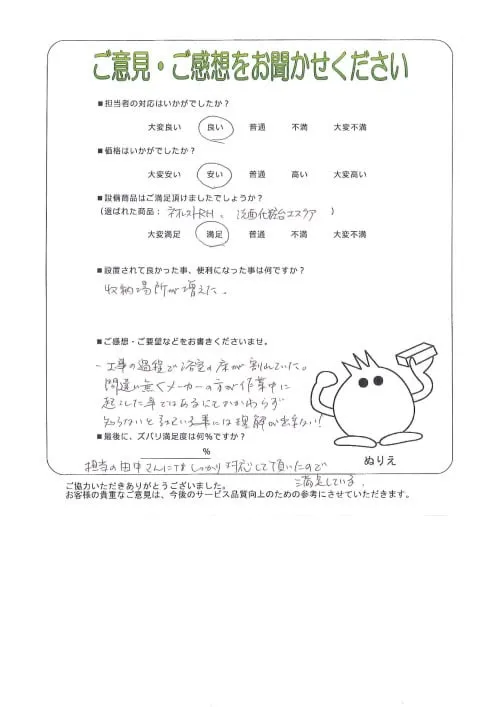 ご意見・ご感想をお聞かせください
■担当者の対応はいかがでしたか？
大変良い 良い 普通 不満 大変不満
■価格はいかがでしたか？
大変安い 安い 普通 高い 大変高い
■設備商品はご満足頂けましたでしょうか？
(選ばれた商品： ネオレストRH 、 洗面化粧台エスクア )
大変満足 満足 普通 不満 大変不満
■設置されて良かった事、便利になった事は何ですか？
収納場所が増えた。
■ご感想・ご要望などをお書きくださいませ。
工事の過程で浴室の床が割れていた。
間違い無くメーカーの方が作業中に
起こした事ではあるにもかかわらず
知らないと言っている事には理解が出来ない！
■最後に、ズバリ満足度は何％ですか？
％
担当の田中さんにはしっかり対応して頂いたので
満足している。
ぬりえ
ご協力いただきありがとうございました。
お客様の貴重なご意見は、今後のサービス品質向上のための参考にさせていただきます。